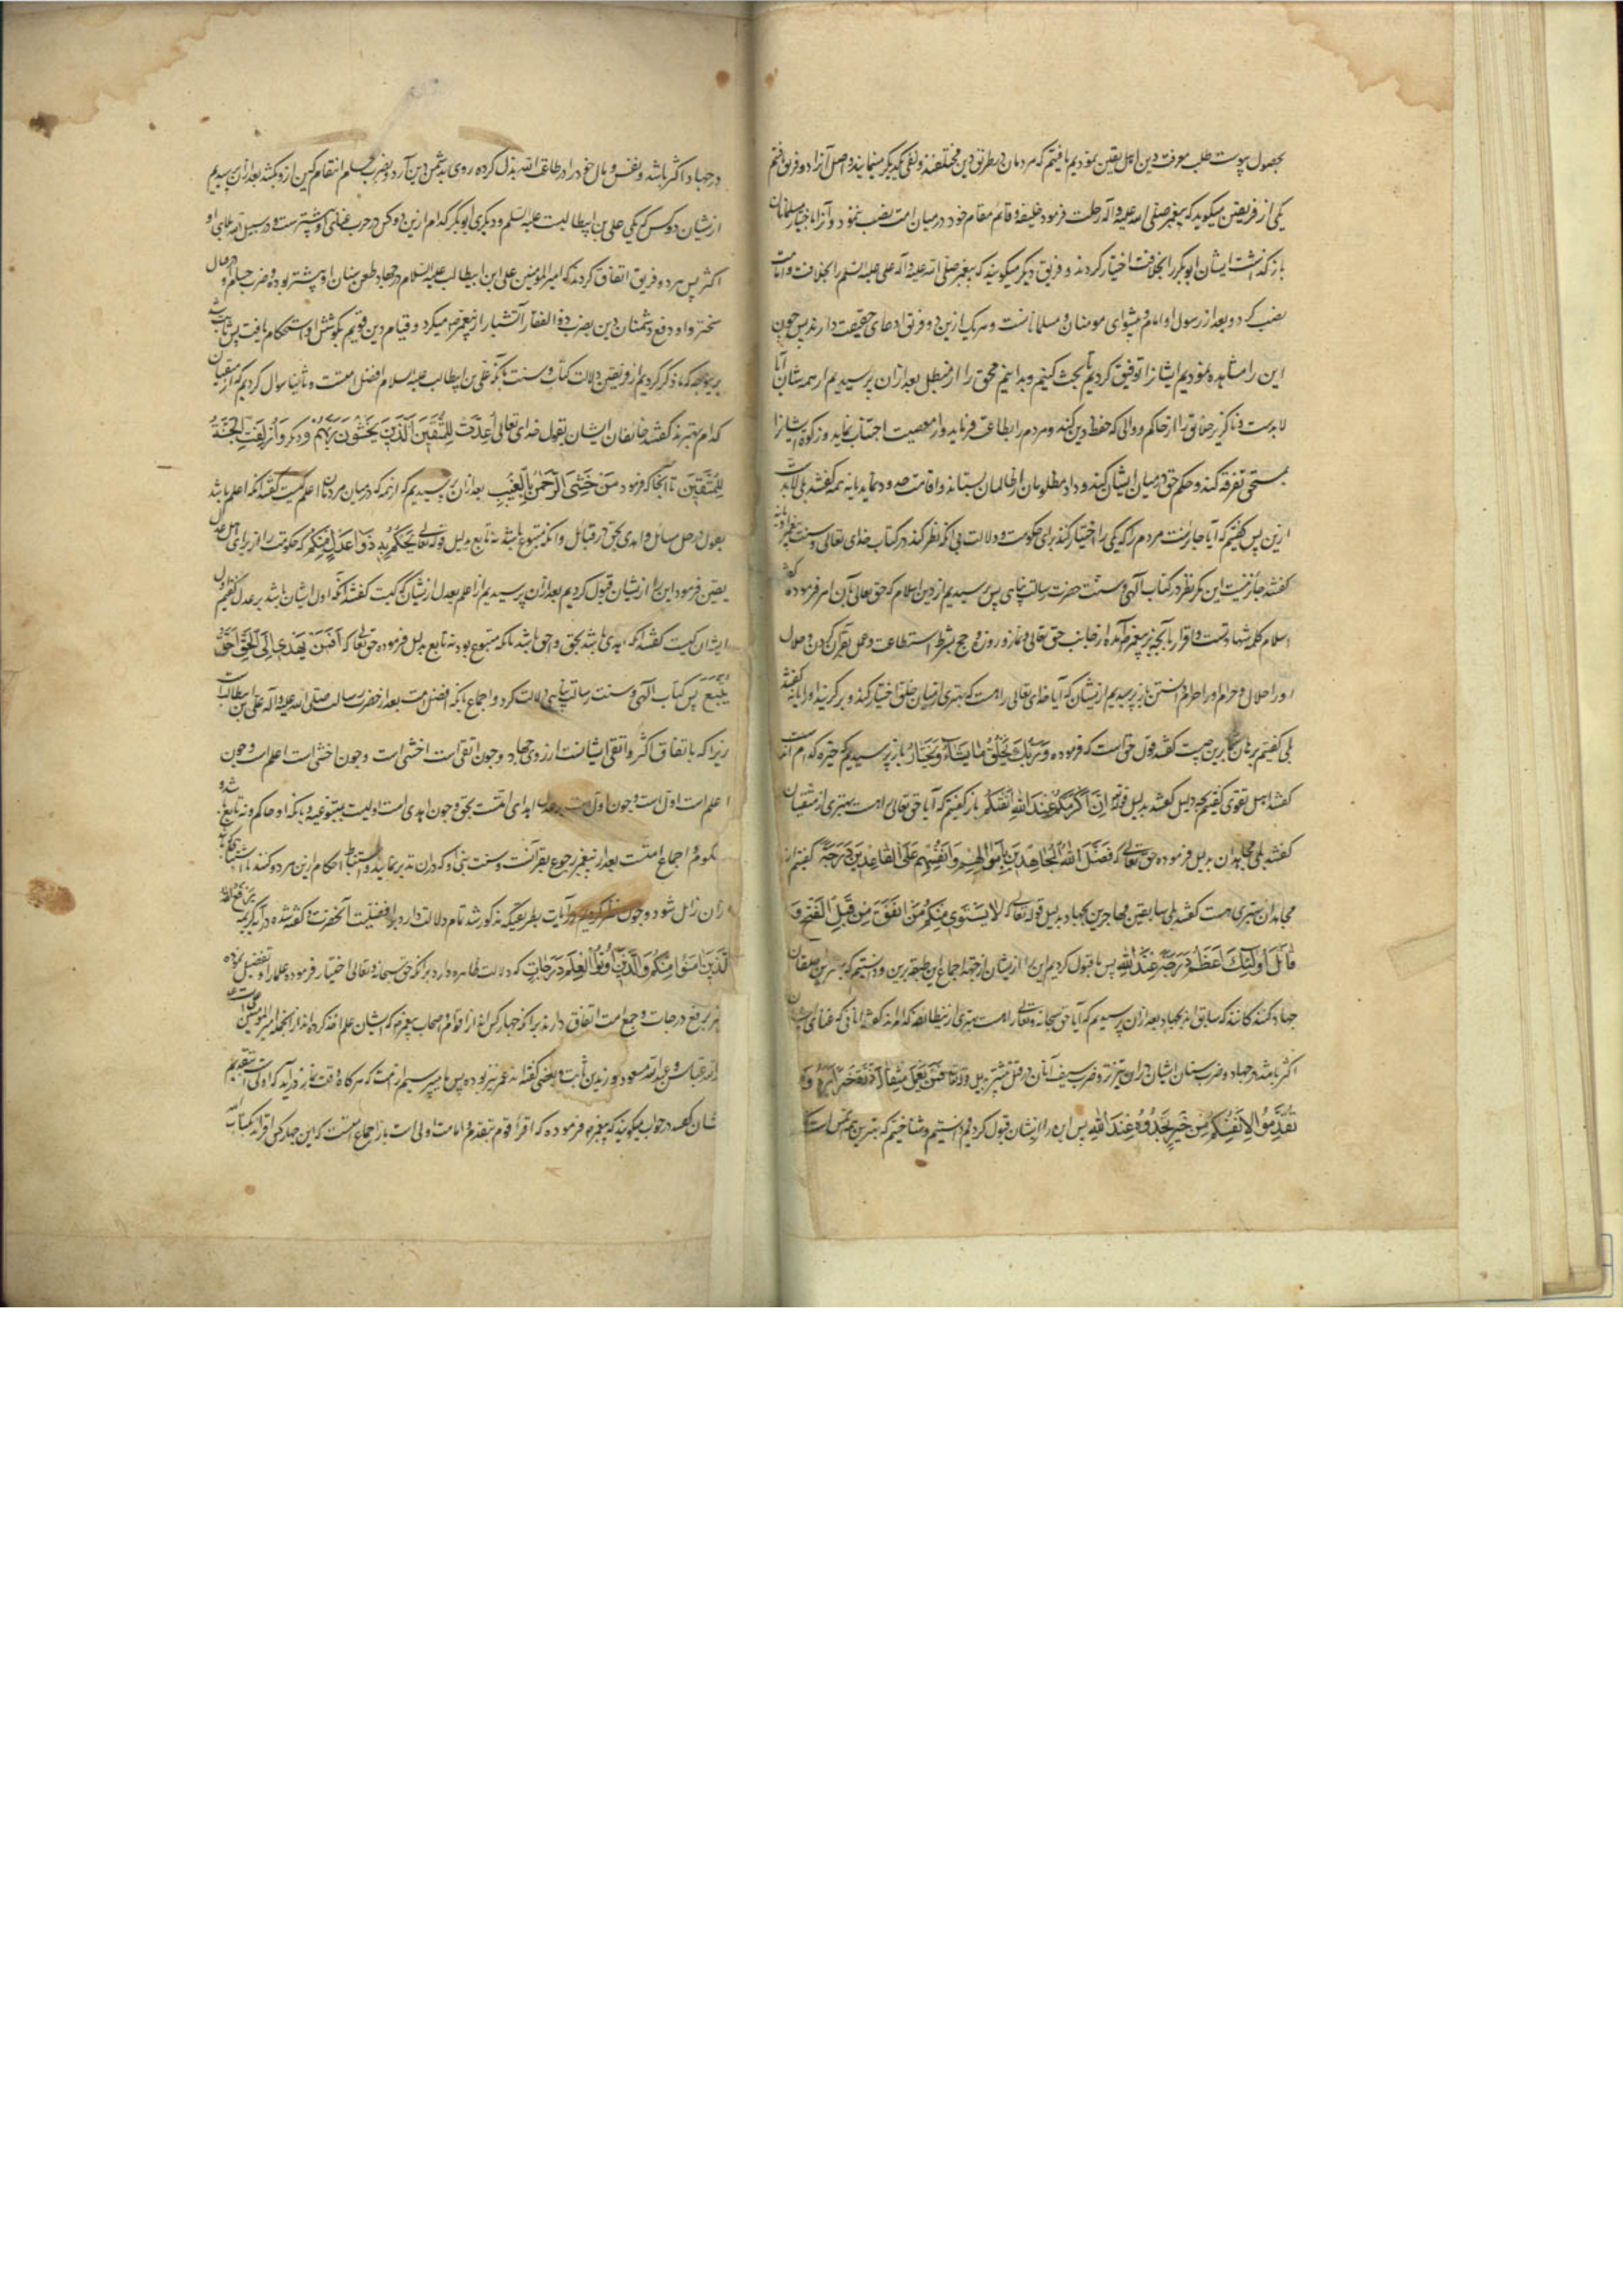 بحصول پیوست طلب معرفت دین اهل یقین نمودیم یافتیم که مردمان در طریق دین مختلفند و نفی یکدیگر مینمایند و اصل آنرا دو فریق یافتم
یکی از فریقین میگوید که پیغمبر صلی الله علیه و آله رحلت فرمود و خلیفه و قائم مقام خود در میان امت نصب ننمود و آنرا باختیار مسلمانان
بازگذاشت ایشان ابوبکر را بخلافت اختیار کردند و فریق دیگر میگویند که پیغمبر صلی الله علیه و آله علی علیه السلم را بخلافت و امامت
نصب کرد و بعد از رسول او امام و پیشوای مومنان و مسلمانانست و هر یک ازین دو فریق ادعای حقیقت دارند پس چون
این را مشاهده نمودیم ایشانرا توقیف کردیم تا بحث کنیم و بدانیم محق را از مبطل بعد از آن پرسیدیم از همه شان آیا
لابدست و ناگزیر خلایق را از حاکم و والی که حفظ دین کند و مردم را بطاعت فرماید و از معصیت اجتناب نماید و زکوة ایشانرا
بمستحق تفرقه کند و حکم حق در میان ایشان کند و داد مظلومان از ظالمان بستاند و اقامت حدود نماید یا نه همه گفتند بلی لابدست
ازین پس گفتیم که آیا جایزست مردم را که یکی را اختیار کنند برای حکومت و دلالت بی آنکه نظر کند در کتاب خدای تعالی و سنت پیغمبر یا نه
گفتند جائز نیست این مگر نظر در کتاب آلهی و سنت حضرت رسالت پناهی پس پرسیدیم از دین اسلام که حق تعالی بآن امر فرموده گفتند
اسلام کلمه شهادتست و اقرار بآنچه پیغمبر آمده از جانب حق تعالی و نماز و روزه و حج بشرط استطاعت و عمل بقرآن کردن و حلال
او را حلال و حرام او را حرام دانستن باز پرسیدیم از ایشان که آیا خدای تعالی را هست که بهتری از میان خلق اختیار کند و برگزیند او را یا نه گفتند
بلی گفتیم برهان برین چیست گفتند قول حق است که فرموده وَرَبُّكَ يَخْلُقُ مَا يَشَاءُ وَيَخْتَارُ باز پرسیدیم که خیره کدام است
گفتند اهل تقوی گفتیم بچه دلیل گفتند بدلیل قوله إِنَّ أَكْرَمَكُمْ عِنْدَ اللَّهِ أَتْقَاكُمْ باز گفتیم که آیا حق تعالی را هست بهتری از متقیان
گفتند بلی مجاهدان بدلیل فرموده حق تعالی که فَضَّلَ اللَّهُ الْمُجَاهِدِينَ بِأَمْوَالِهِمْ وَأَنْفُسِهِمْ عَلَى الْقَاعِدِينَ دَرَجَةً گفتیم از
مجاهدان بهتری هست گفتند بلی سابقین مهاجرین بجهاد بدلیل قوله تعالی که لَا يَسْتَوِي مِنْكُمْ مَنْ أَنْفَقَ مِنْ قَبْلِ الْفَتْحِ وَ
قَاتَلَ أُولَئِكَ أَعْظَمُ دَرَجَةً عِنْدَ اللَّهِ پس ما قبول کردیم این را از ایشان از جهة اجماع این طبقه برین و دانستیم که بهترین
جهاد کنندگانند که سابق اند بجهاد بعد از آن پرسیدیم که آیا حق سبحانه و تعالی را هست بهتری از ینطایفه که گفتند آنانی که عنای ایشان
اکثر باشد در جهاد و ضرب سنان ایشان در آن تیزتر و ضرب سیف آنان در قتل بیشتر بدلیل فَمَنْ يَعْمَلْ مِثْقَالَ ذَرَّةٍ خَيْرًا يَرَهُ وَمَا
تُقَدِّمُوا لِأَنْفُسِكُمْ مِنْ خَيْرٍ تَجِدُوهُ عِنْدَ اللَّهِ پس این را از ایشان قبول کردیم و دانستیم و شناختیم که بهترین
در جهاد اکثر باشد و نفس و مال خود را در طاعت الله بذل کرده روی بدشمن دین آرد و بضرب انتقام کین ازو بکشد بعد از آن پرسیدیم
از ایشان دو کس که یکی علی بن ابیطالبست علیه السلم و دیگری ابوبکر کدام ازین دو کس در حرب عنای او بیشترست و در سبیل الله بلای او
اکثر پس هر دو فریق اتفاق کردند که امیر المومنین علی ابن ابیطالب علیه السلام در جهاد طعن سنان او بیشتر بوده و ضرب
سختر و او دفع دشمنان دین بضرب ذو الفقار آتشبار از پیغمبر میکرد و قیام دین قویم بکوشش او استحکام یافت پس ثابت شد
برینوجه که ما ذکر کردیم از فریقین دلالت کتاب و سنت بآنکه علی بن ابیطالب علیه السلام افضل امتست و ثانیا سوال کردیم که از متقیان
کدام بهترند گفتند خائفان ایشان بقول خدای تعالی أُعِدَّتْ لِلْمُتَّقِينَ الَّذِينَ يَخْشَوْنَ رَبَّهُمْ و دیگر وَأُزْلِفَتِ الْجَنَّةُ
لِلْمُتَّقِينَ تا آنجا که فرمود مَنْ خَشِيَ الرَّحْمَنَ بِالْغَيْبِ بعد از آن پرسیدیم که از همه که در میان مردمان اعلم کیست گفتند آنکه اعلم باشد
بقول در حل مسائل و اهدی بحق در قبائل و آنکه متبوع باشد نه تابع بدلیل قوله تعالی يَحْكُمُ بِهِ ذَوَا عَدْلٍ مِنْكُمْ که حکومت را از برای اهل عدل
یقین فرمود این را از ایشان قبول کردیم بعد از آن پرسیدیم از اعلم بعدل از ایشان که کیست گفتند آنکه ادل ایشان باشد بر عدل گفتیم ادل
ایشان کیست گفتند آنکه اهدی باشد بحق و احق باشد بآنکه متبوع بود نه تابع بدلیل فرموده حق تعالی که أَفَمَنْ يَهْدِي إِلَى الْحَقِّ أَحَقُّ
أَنْ يُتَّبَعَ پس کتاب آلهی و سنت رسالت پناهی دلالت کرد و اجماع بآنکه افضل امت بعد از حضرت رسالت صلی الله علیه و آله علی بن ابیطالب است
زیرا که باتفاق اکثر و اتقی ایشانست از روی جهاد و چون اتقی است اخشی است و چون اخشی است اعلم است و چون
اعلم است ادل است و چون ادل است بر عدل اهدای امتست بحق و چون اهدی است اولیست بمتبوعیه و بآنکه او حاکم شود نه تابع و
محکوم و اجماع امتست بعد از پیغمبر رجوع بقرآنست و سنت نبی او که در آن تدبر نمایند و استنباط احکام ازین هر دو کنند تا اشتباه
از آن زایل شود و چون نظر کردیم در آیات بطریقیکه مذکور شد تمام دلالت دارد بر افضلیت آنحضرت و گفته شده در آیه کریمه يَرْفَعِ اللَّهُ
الَّذِينَ آمَنُوا مِنْكُمْ وَالَّذِينَ أُوتُوا الْعِلْمَ دَرَجَاتٍ که دلالت ظاهره دارد بر آنکه حق سبحانه و تعالی اختیار فرموده علما را و تفضیل نموده
بر رفع درجات و جمع امت اتفاق دارند بر آنکه چهار کس از اقوام اصحاب پیغمبر که ایشان علم اخذ کرده اند از آنجمله امیر المومنین علی است
و عباس و عبدالله مسعود و زید بن ثابت و بعضی گفته اند عمر نیز بوده پس ما پرسیدیم از امت که هر گاه وقت نماز درآید که اولی است بتقدیم
ایشان در جواب میگویند که پیغمبر فرموده که اقرأ قوم بتقدم و امامت اولی است باز اجماع امتست که این چهار کس اقرأ اند بکتاب الله